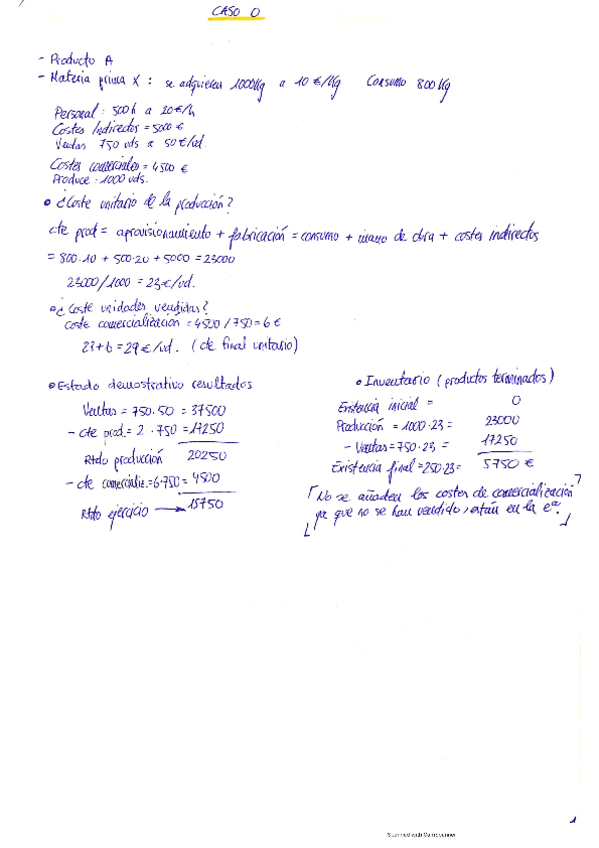 CASO 0
- Producto A
- Materia prima X : se adquieren 1000Kg a 10 €/Kg Consumo 800 Kg
Personal : 500 h a 20 €/h
Costes Indirectos = 5000 €
Ventas 750 uds a 50 €/ud.
Costes comerciales = 4500 €
Produce : 1000 uds.
• ¿Coste unitario de la producción?
cte prod = aprovisionamiento + fabricación = consumo + mano de obra + costes indirectos
= 800·10 + 500·20 + 5000 = 23000
23000/1000 = 23 €/ud.
• ¿Coste unidades vendidas?
coste comercialización = 4500 / 750 = 6 €
23+6 = 29 €/ud. (cte final unitario)
• Estado demostrativo resultados
Ventas = 750·50 = 37500
- cte prod. = 2 · 750 = 17250
Rtdo producción 20250
- cte comercializ. = 6·750 = 4500
Rtdo ejercicio → 15750
• Inventario (productos terminados)
Existencia inicial = 0
Producción = 1000·23 = 23000
- Ventas = 750·23 = 17250
Existencia final = 250·23 = 5750 €
「No se añaden los costes de comercialización
ya que no se han vendido, están en la eª.」
1
Scanned with CamScanner